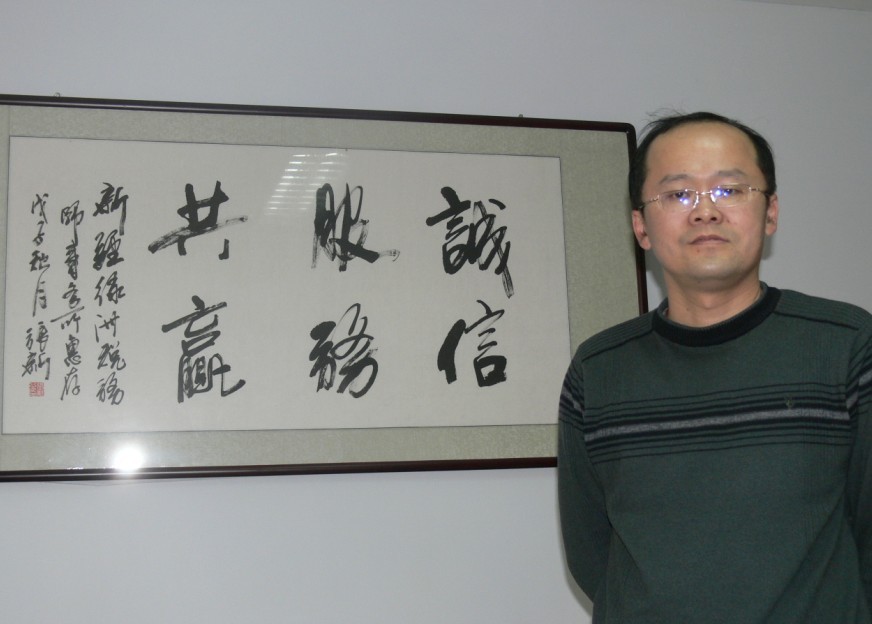 誠信
服務
共贏
新疆綠洲税務
師事務所惠存
戊子秋月 張新